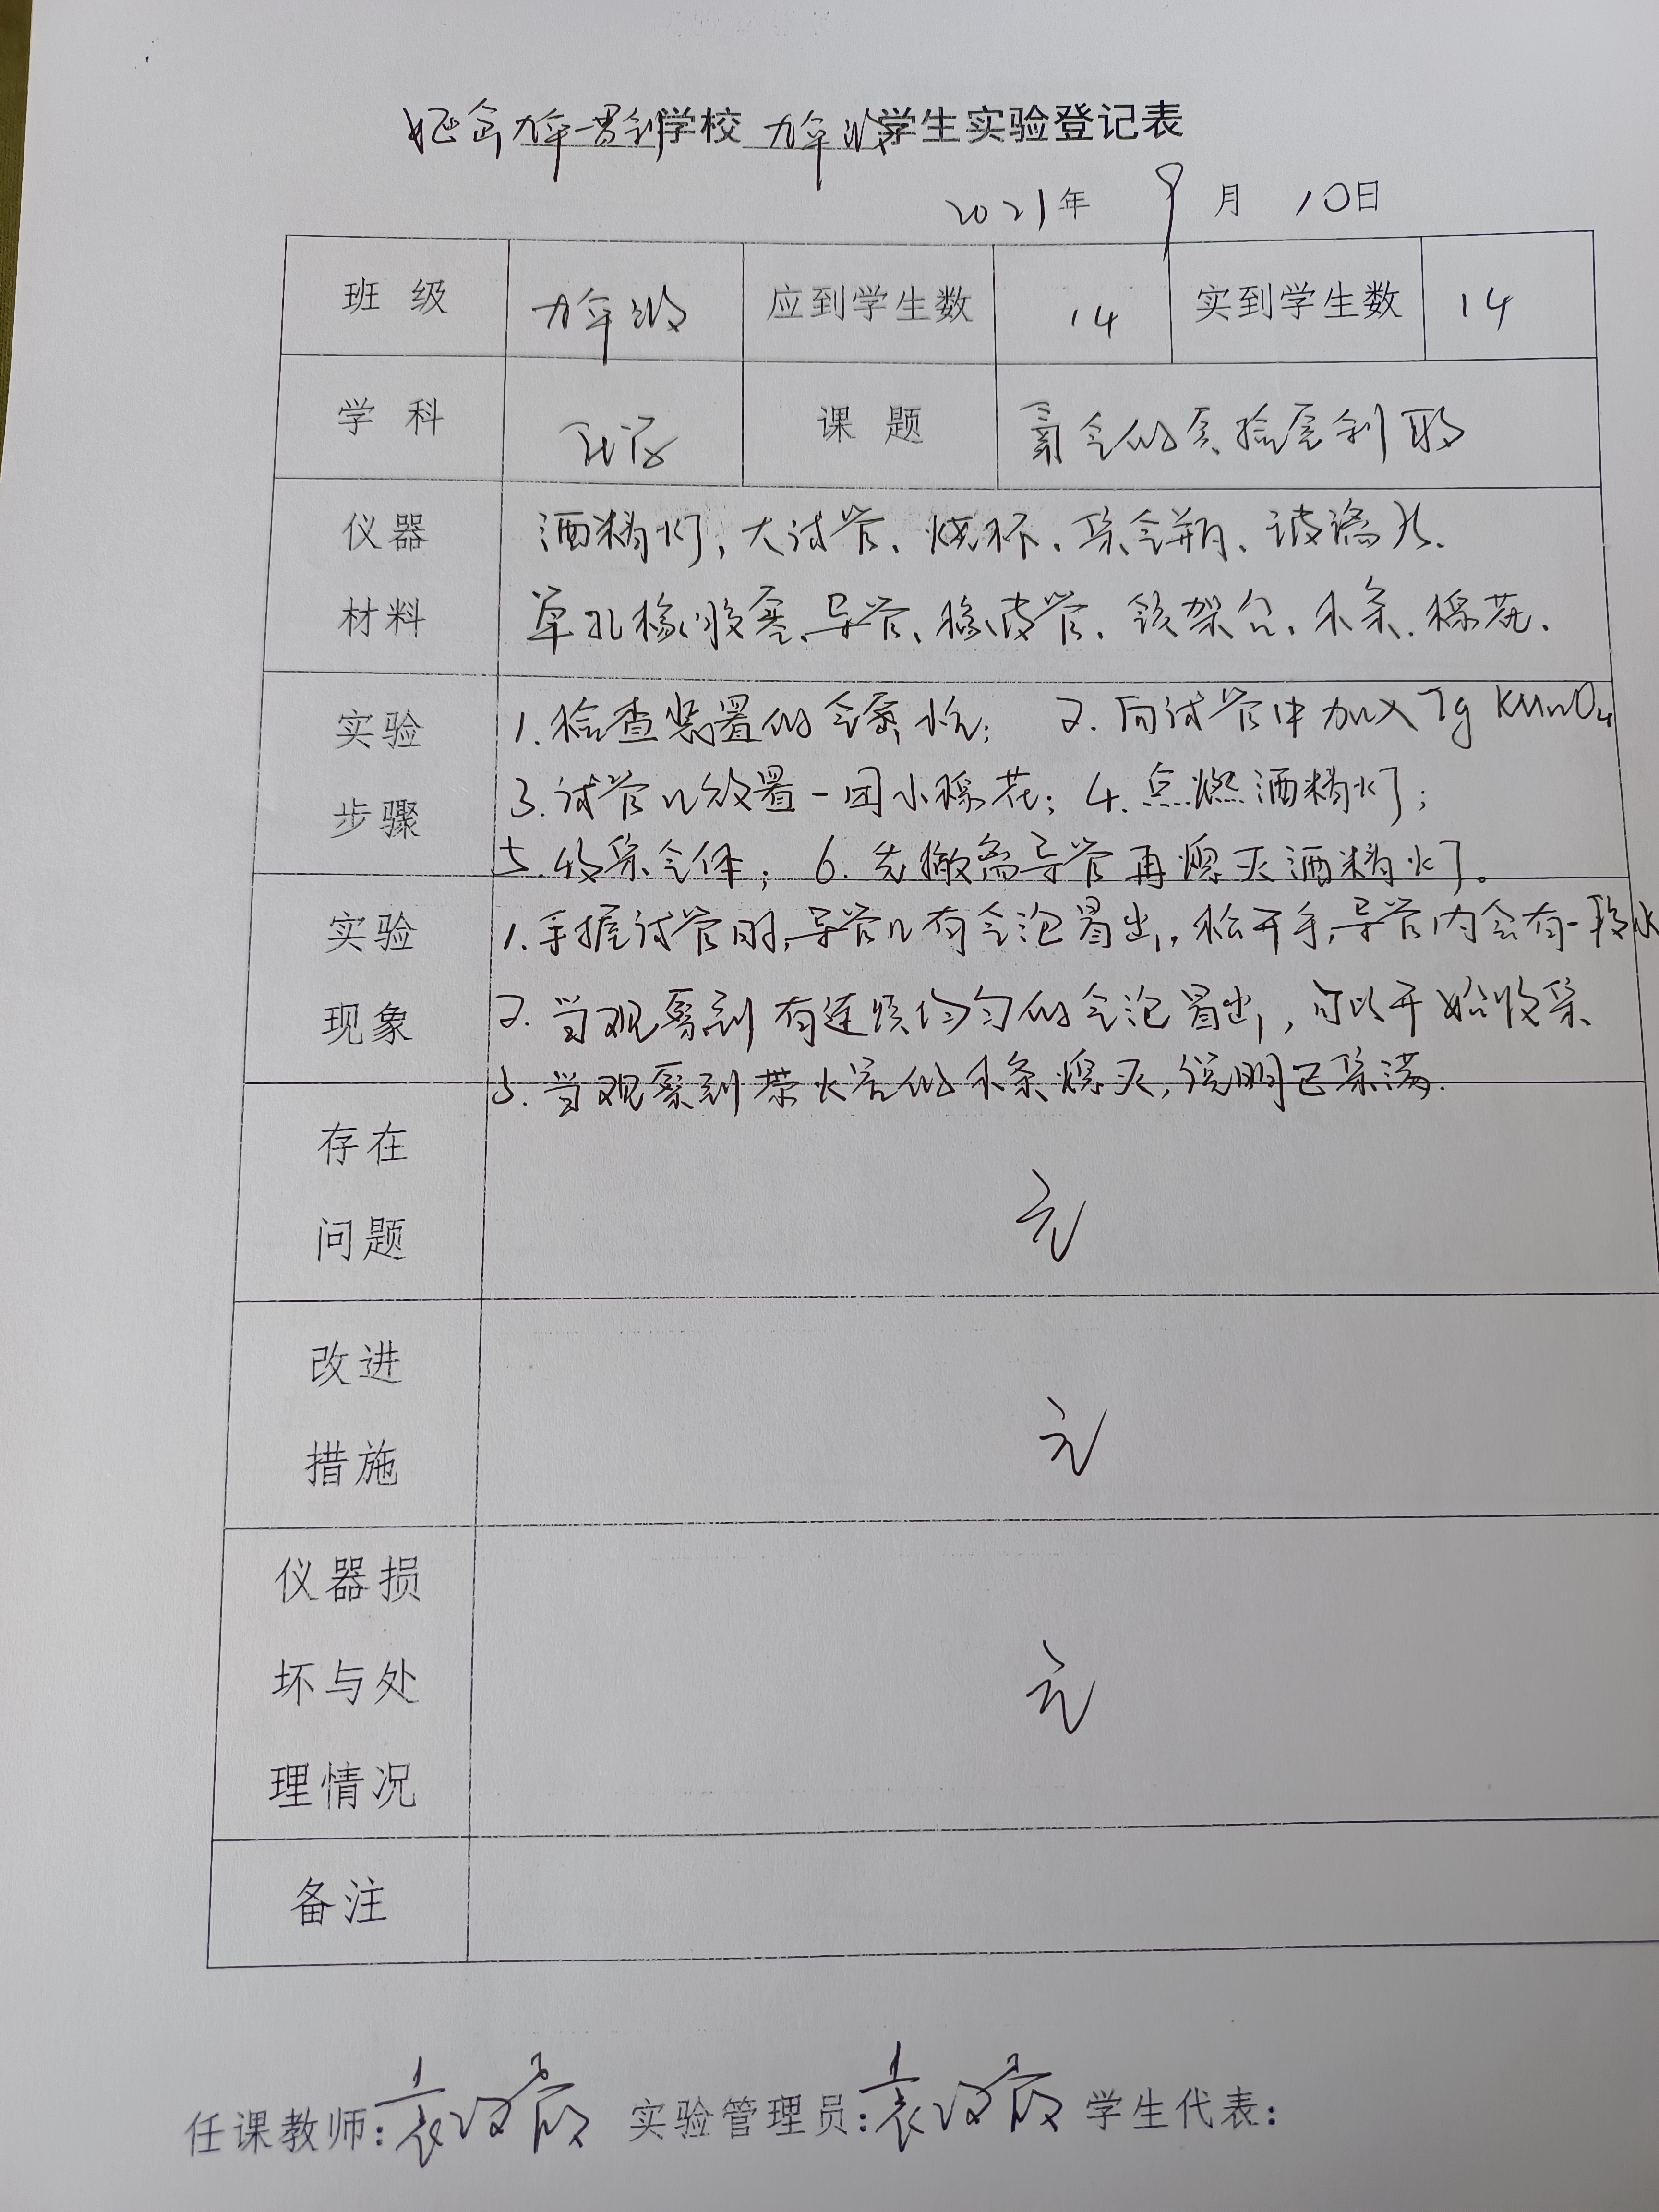 九年一贯制学校 九年级学生实验登记表
2021年 9月 10日
班 级 九年级 应到学生数 14 实到学生数 14
学 科 化学 课 题 氧气的实验室制取
仪器 酒精灯、大试管、烧杯、集气瓶、玻璃片、
材料 单孔橡胶塞、导管、橡皮管、铁架台、木条、棉花.
实验 1.检查装置的气密性; 2.向试管中加入7g KMnO4
步骤 3.试管口放置一团小棉花; 4.点燃酒精灯;
5.收集气体; 6.先撤离导管再熄灭酒精灯。
实验 1.手握试管时,导管口有气泡冒出,松开手,导管内会有一段水
现象 2.当观察到有连续均匀的气泡冒出,可以开始收集
3.当观察到带火星的木条熄灭,说明已集满.
存在
问题
无
改进
措施
无
仪器损
坏与处
理情况
无
备注
任课教师: 袁 实验管理员: 袁 学生代表: